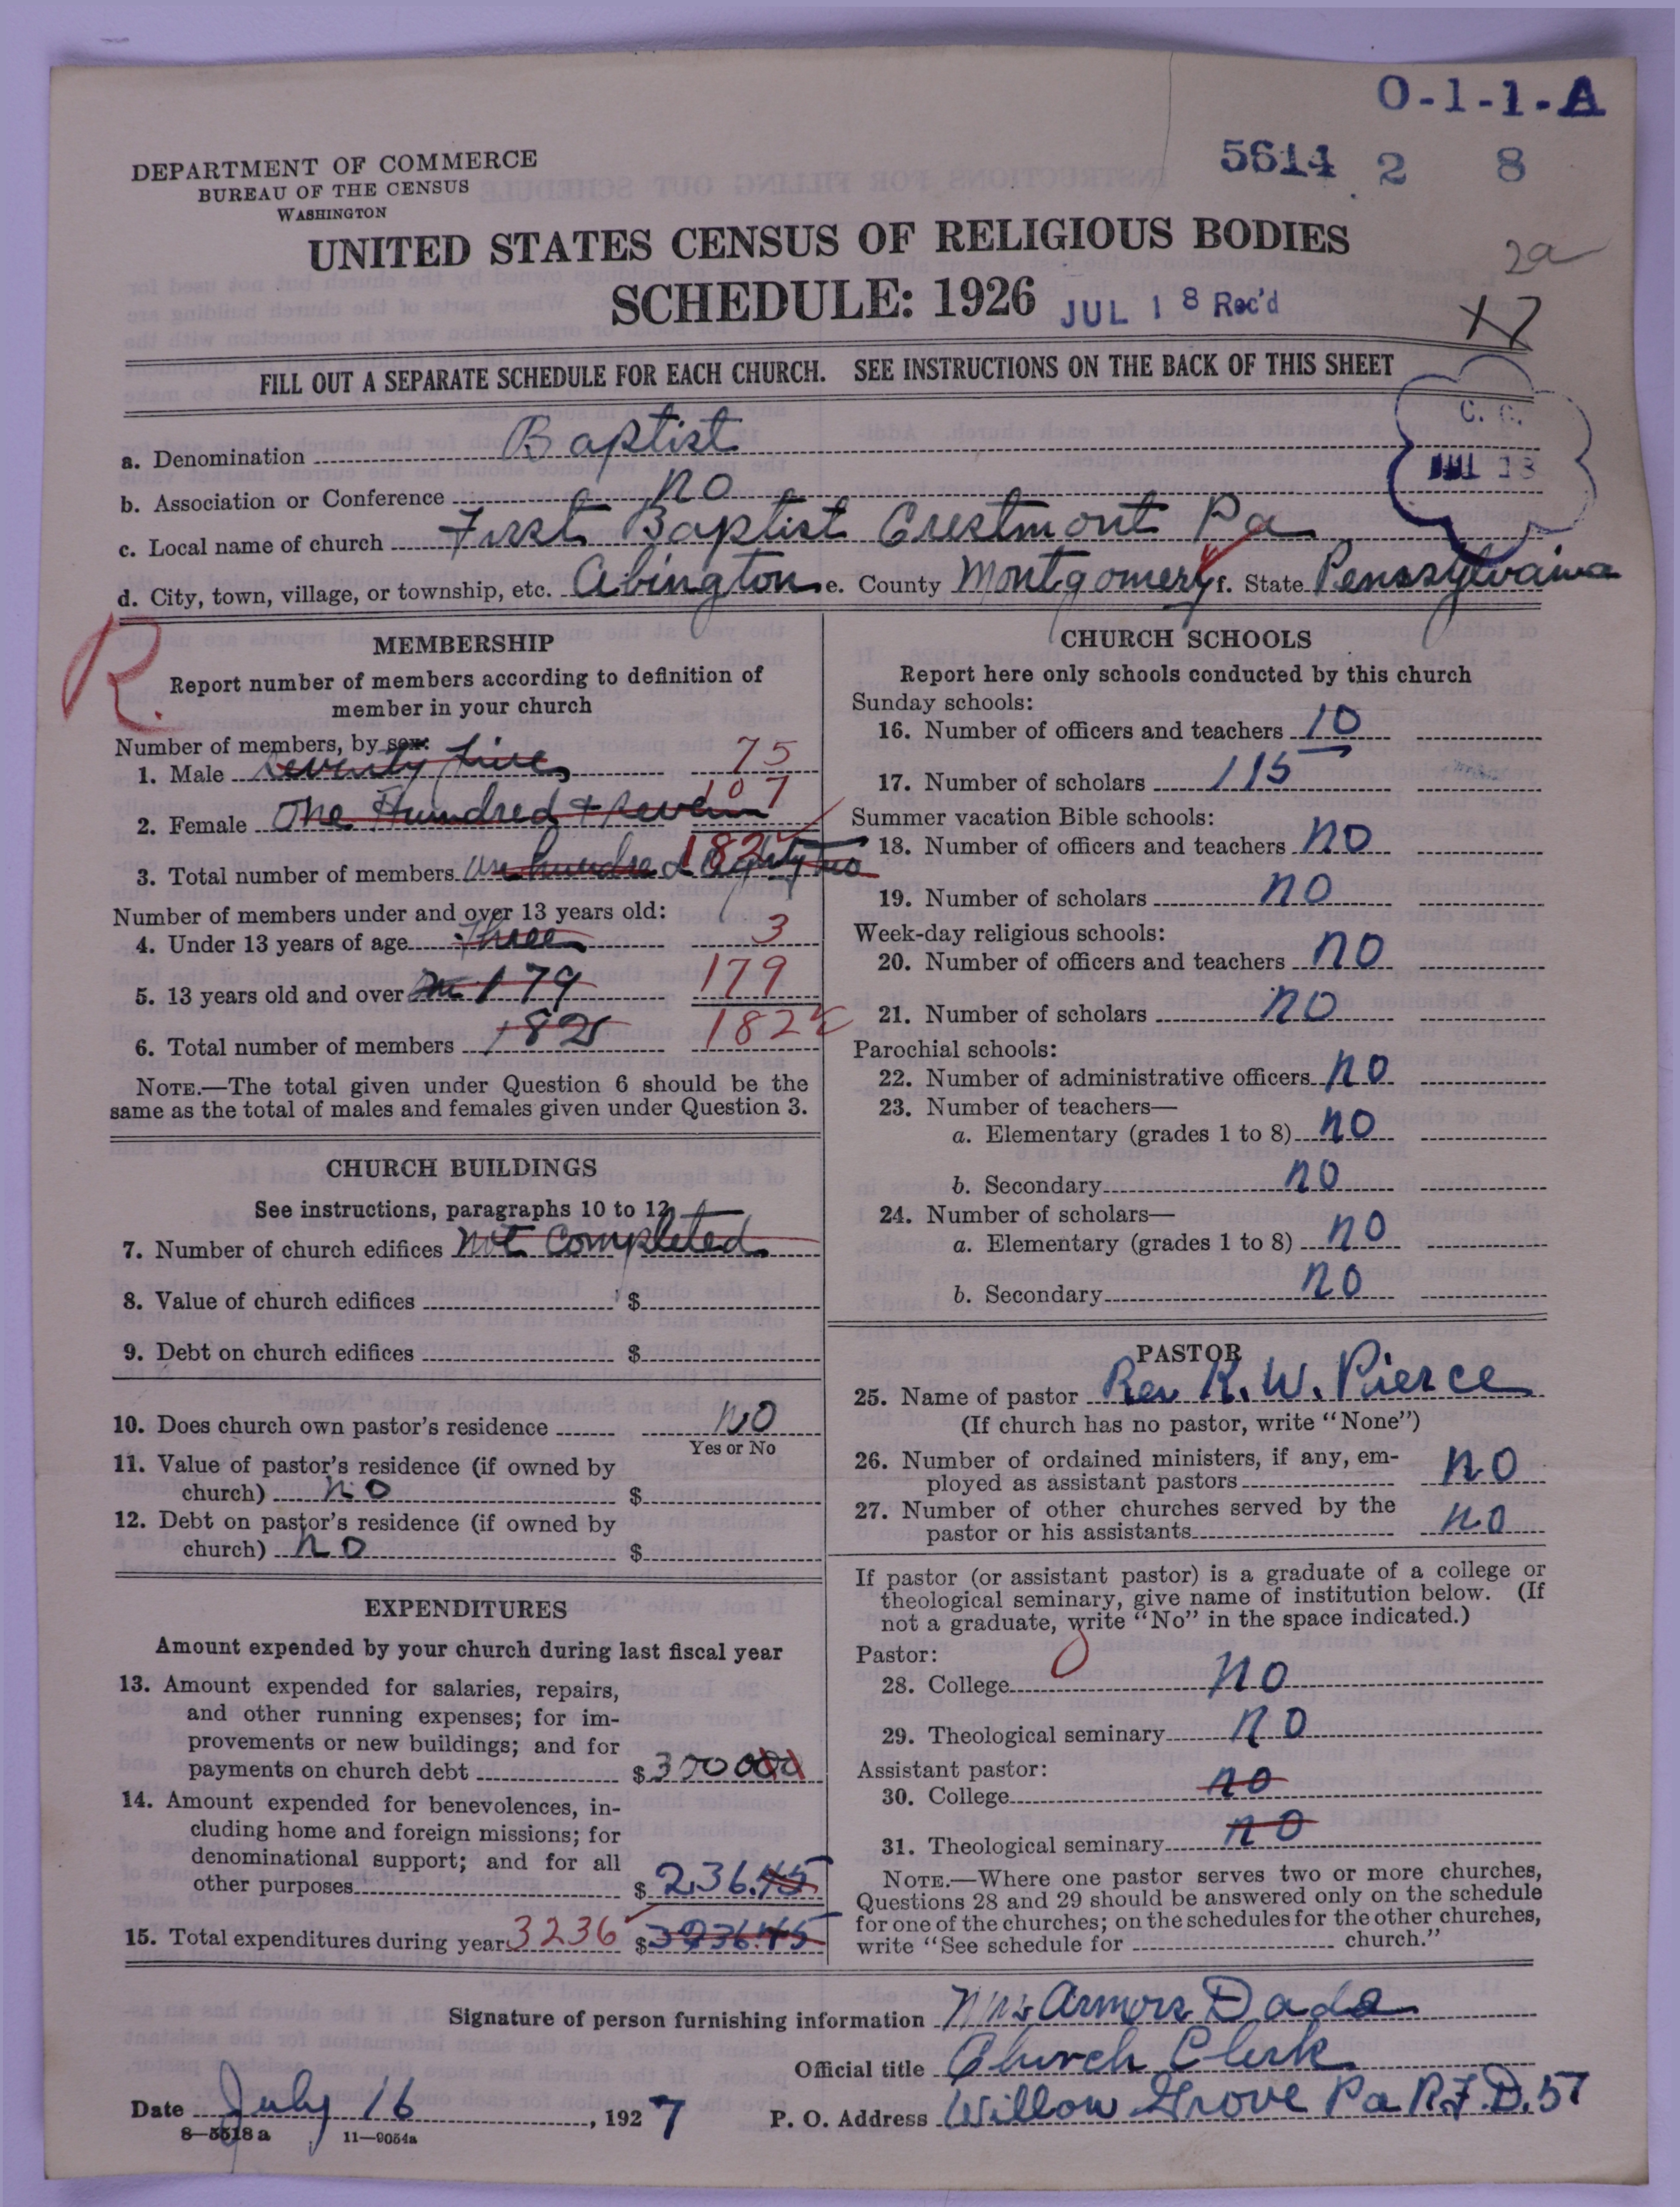 O-1-1-A
5614 2 8
DEPARTMENT OF COMMERCE
BUREAU OF THE CENSUS
WASHINGTON
UNITED STATES CENSUS OF RELIGIOUS BODIES
2a
SCHEDULE: 1926 JUL 18 Rec'd
FILL OUT A SEPARATE SCHEDULE FOR EACH CHURCH. SEE INSTRUCTIONS ON THE BACK OF THIS SHEET
C. C.
JUL 18
a. Denomination Baptist
b. Association or Conference no
c. Local name of church First Baptist Crestmont Pa
d. City, town, village, or township, etc. Abington e. County Montgomery f. State Pennsylvaina
R.
MEMBERSHIP
Report number of members according to definition of
member in your church
Number of members, by sex:
1. Male Seventy five 75
2. Female One Hundred + seven 107
3. Total number of members one hundred Eighty two 182
Number of members under and over 13 years old:
4. Under 13 years of age three 3
5. 13 years old and over 179 179
6. Total number of members 182 182
NOTE.—The total given under Question 6 should be the
same as the total of males and females given under Question 3.
CHURCH BUILDINGS
See instructions, paragraphs 10 to 12
7. Number of church edifices not Completed
8. Value of church edifices $
9. Debt on church edifices $
10. Does church own pastor's residence no
Yes or No
11. Value of pastor's residence (if owned by
church) no $
12. Debt on pastor's residence (if owned by
church) no $
EXPENDITURES
Amount expended by your church during last fiscal year
13. Amount expended for salaries, repairs,
and other running expenses; for im-
provements or new buildings; and for
payments on church debt $300000
14. Amount expended for benevolences, in-
cluding home and foreign missions; for
denominational support; and for all
other purposes $ 236.45
15. Total expenditures during year 3236 $3236.45
CHURCH SCHOOLS
Report here only schools conducted by this church
Sunday schools:
16. Number of officers and teachers 10
17. Number of scholars 115
Summer vacation Bible schools:
18. Number of officers and teachers no
19. Number of scholars no
Week-day religious schools:
20. Number of officers and teachers no
21. Number of scholars no
Parochial schools:
22. Number of administrative officers no
23. Number of teachers—
a. Elementary (grades 1 to 8) no
b. Secondary no
24. Number of scholars—
a. Elementary (grades 1 to 8) no
b. Secondary no
PASTOR
25. Name of pastor Rev R. W. Pierce
(If church has no pastor, write "None")
26. Number of ordained ministers, if any, em-
ployed as assistant pastors no
27. Number of other churches served by the
pastor or his assistants no
If pastor (or assistant pastor) is a graduate of a college or
theological seminary, give name of institution below. (If
not a graduate, write "No" in the space indicated.)
Pastor:
28. College no
29. Theological seminary no
Assistant pastor:
30. College no
31. Theological seminary no
NOTE.—Where one pastor serves two or more churches,
Questions 28 and 29 should be answered only on the schedule
for one of the churches; on the schedules for the other churches,
write "See schedule for church."
Signature of person furnishing information Mrs Armors Dade
Official title Church Clerk
Date July 16, 1927 P. O. Address Willow Grove Pa R.F.D. 57
8—5518 a 11—9054a